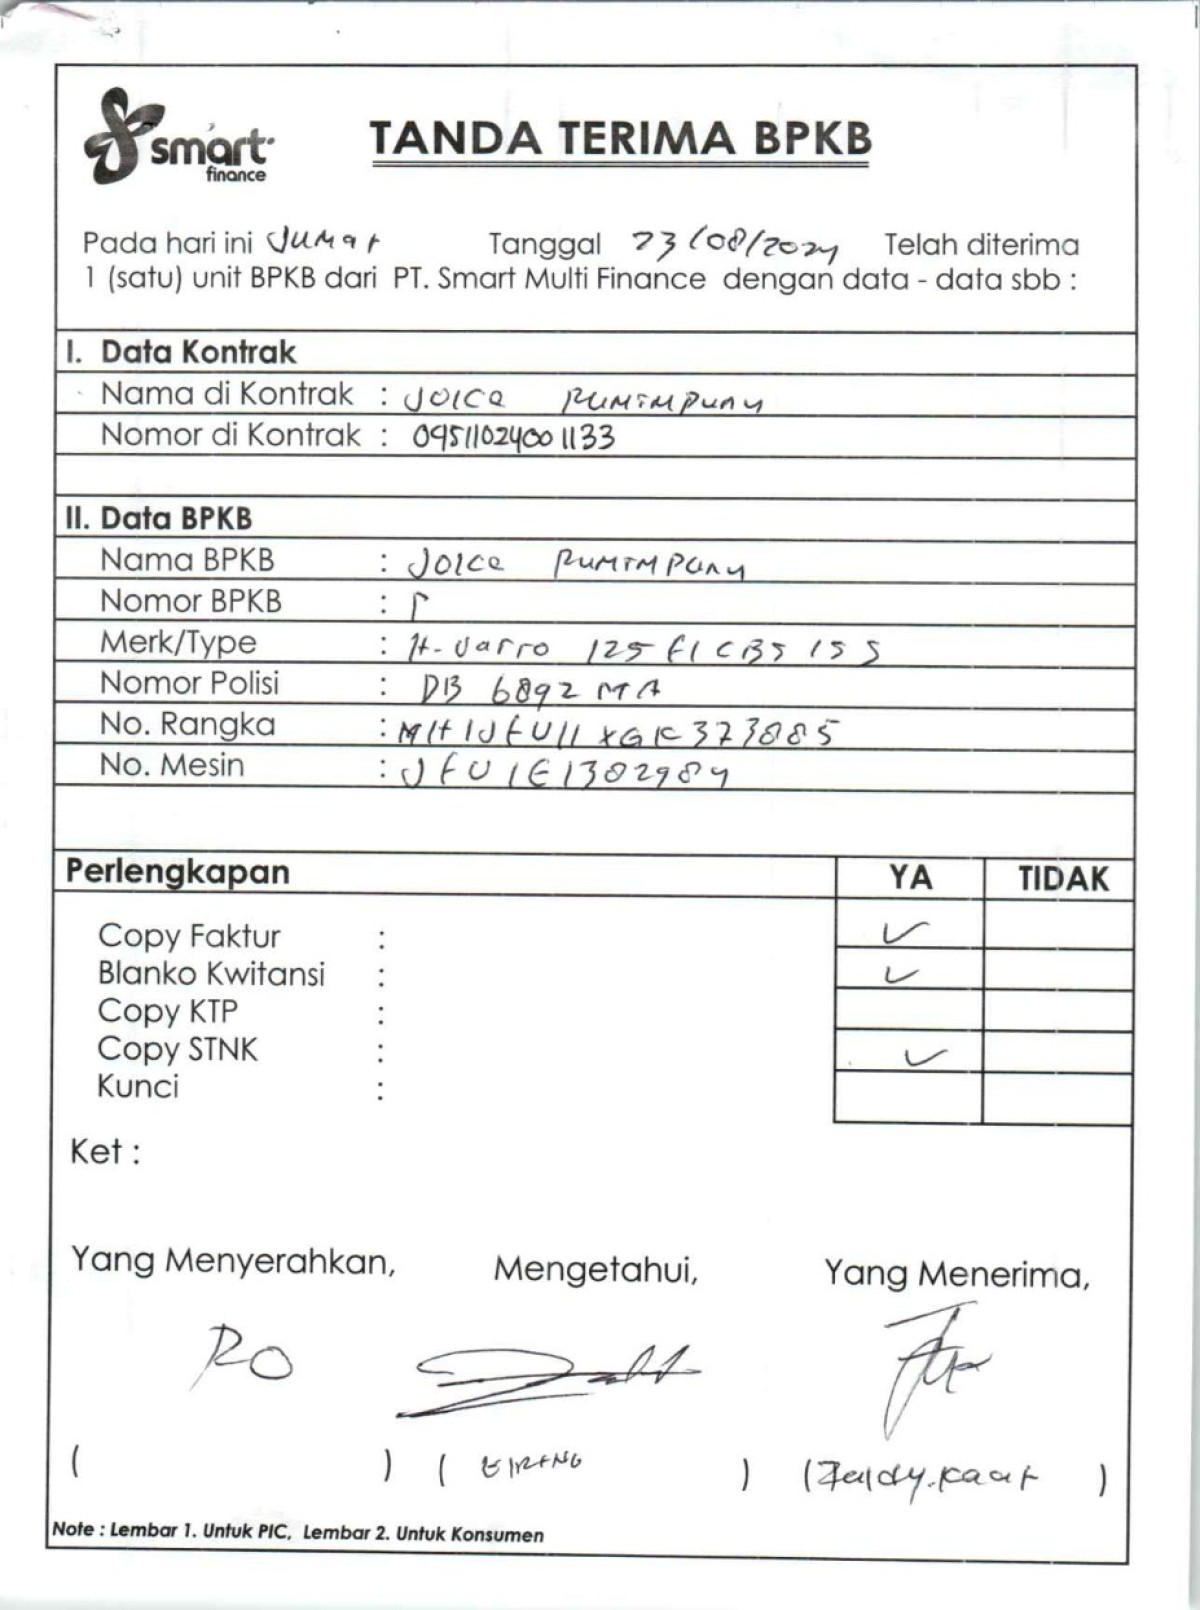 smart finance
TANDA TERIMA BPKB
Pada hari ini Jumat Tanggal 23/08/2024 Telah diterima
1 (satu) unit BPKB dari PT. Smart Multi Finance dengan data - data sbb :
I. Data Kontrak
Nama di Kontrak : Joice Rumimpuny
Nomor di Kontrak : 09511024001133
II. Data BPKB
Nama BPKB : Joice Rumimpuny
Nomor BPKB :
Merk/Type : H- Varro 125 F1 CBS ISS
Nomor Polisi : DB 6892 MA
No. Rangka : MH1JFU11XGK373885
No. Mesin : JFU1E1382984
Perlengkapan YA TIDAK
Copy Faktur : ✓
Blanko Kwitansi : ✓
Copy KTP :
Copy STNK : ✓
Kunci :
Ket :
Yang Menyerahkan, Mengetahui, Yang Menerima,
RO
( ) ( ) ( )
Note : Lembar 1. Untuk PIC, Lembar 2. Untuk Konsumen